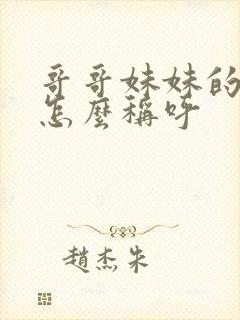 哥哥妹妹的
怎麼稱呼
趙杰朱